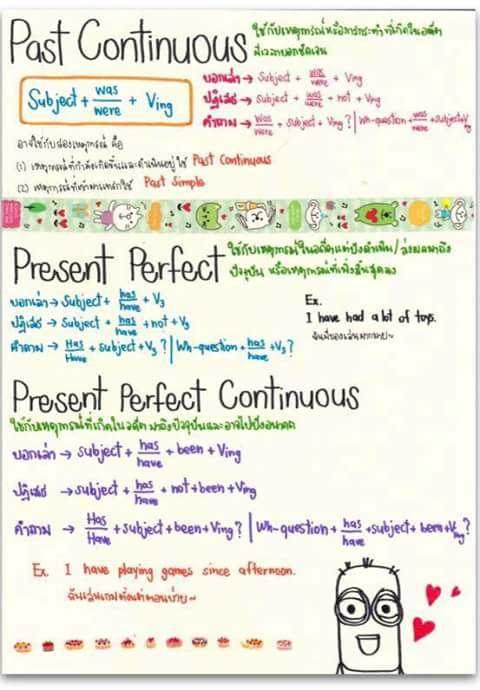 Past Continuous
ใช้กับเหตุการณ์หรือการกระทำที่เกิดในอดีต
มีเวลาบอกชัดเจน
Subject + was/were + Ving
บอกเล่า → Subject + was/were + Ving
ปฏิเสธ → Subject + was/were + not + Ving
คำถาม → was/were + Subject + Ving? | Wh-question + was/were + Subject + Ving
อาจใช้กับสองเหตุการณ์ คือ
(1) เหตุการณ์ที่กำลังเกิดขึ้นและดำเนินอยู่ ใช้ Past Continuous
(2) เหตุการณ์ที่เข้ามาแทรกใช้ Past Simple
Present Perfect
ใช้กับเหตุการณ์ในอดีตแต่ยังดำเนิน/ส่งผลมาถึง
ปัจจุบัน หรือเหตุการณ์ที่เพิ่งสิ้นสุดลง
บอกเล่า → Subject + has/have + V3
ปฏิเสธ → Subject + has/have + not + V3
คำถาม → Has/Have + Subject + V3? | Wh-question + has/have + V3?
Ex.
I have had a lot of toys.
ฉันมีของเล่นมากมาย~
Present Perfect Continuous
ใช้กับเหตุการณ์ที่เกิดในอดีต มาถึงปัจจุบันและอาจไปถึงอนาคต
บอกเล่า → Subject + has/have + been + Ving
ปฏิเสธ → Subject + has/have + not + been + Ving
คำถาม → Has/Have + subject + been + Ving? | Wh-question + has/have + subject + been + Ving?
Ex. I have playing games since afternoon.
ฉันเล่นเกมตั้งแต่ตอนบ่าย~